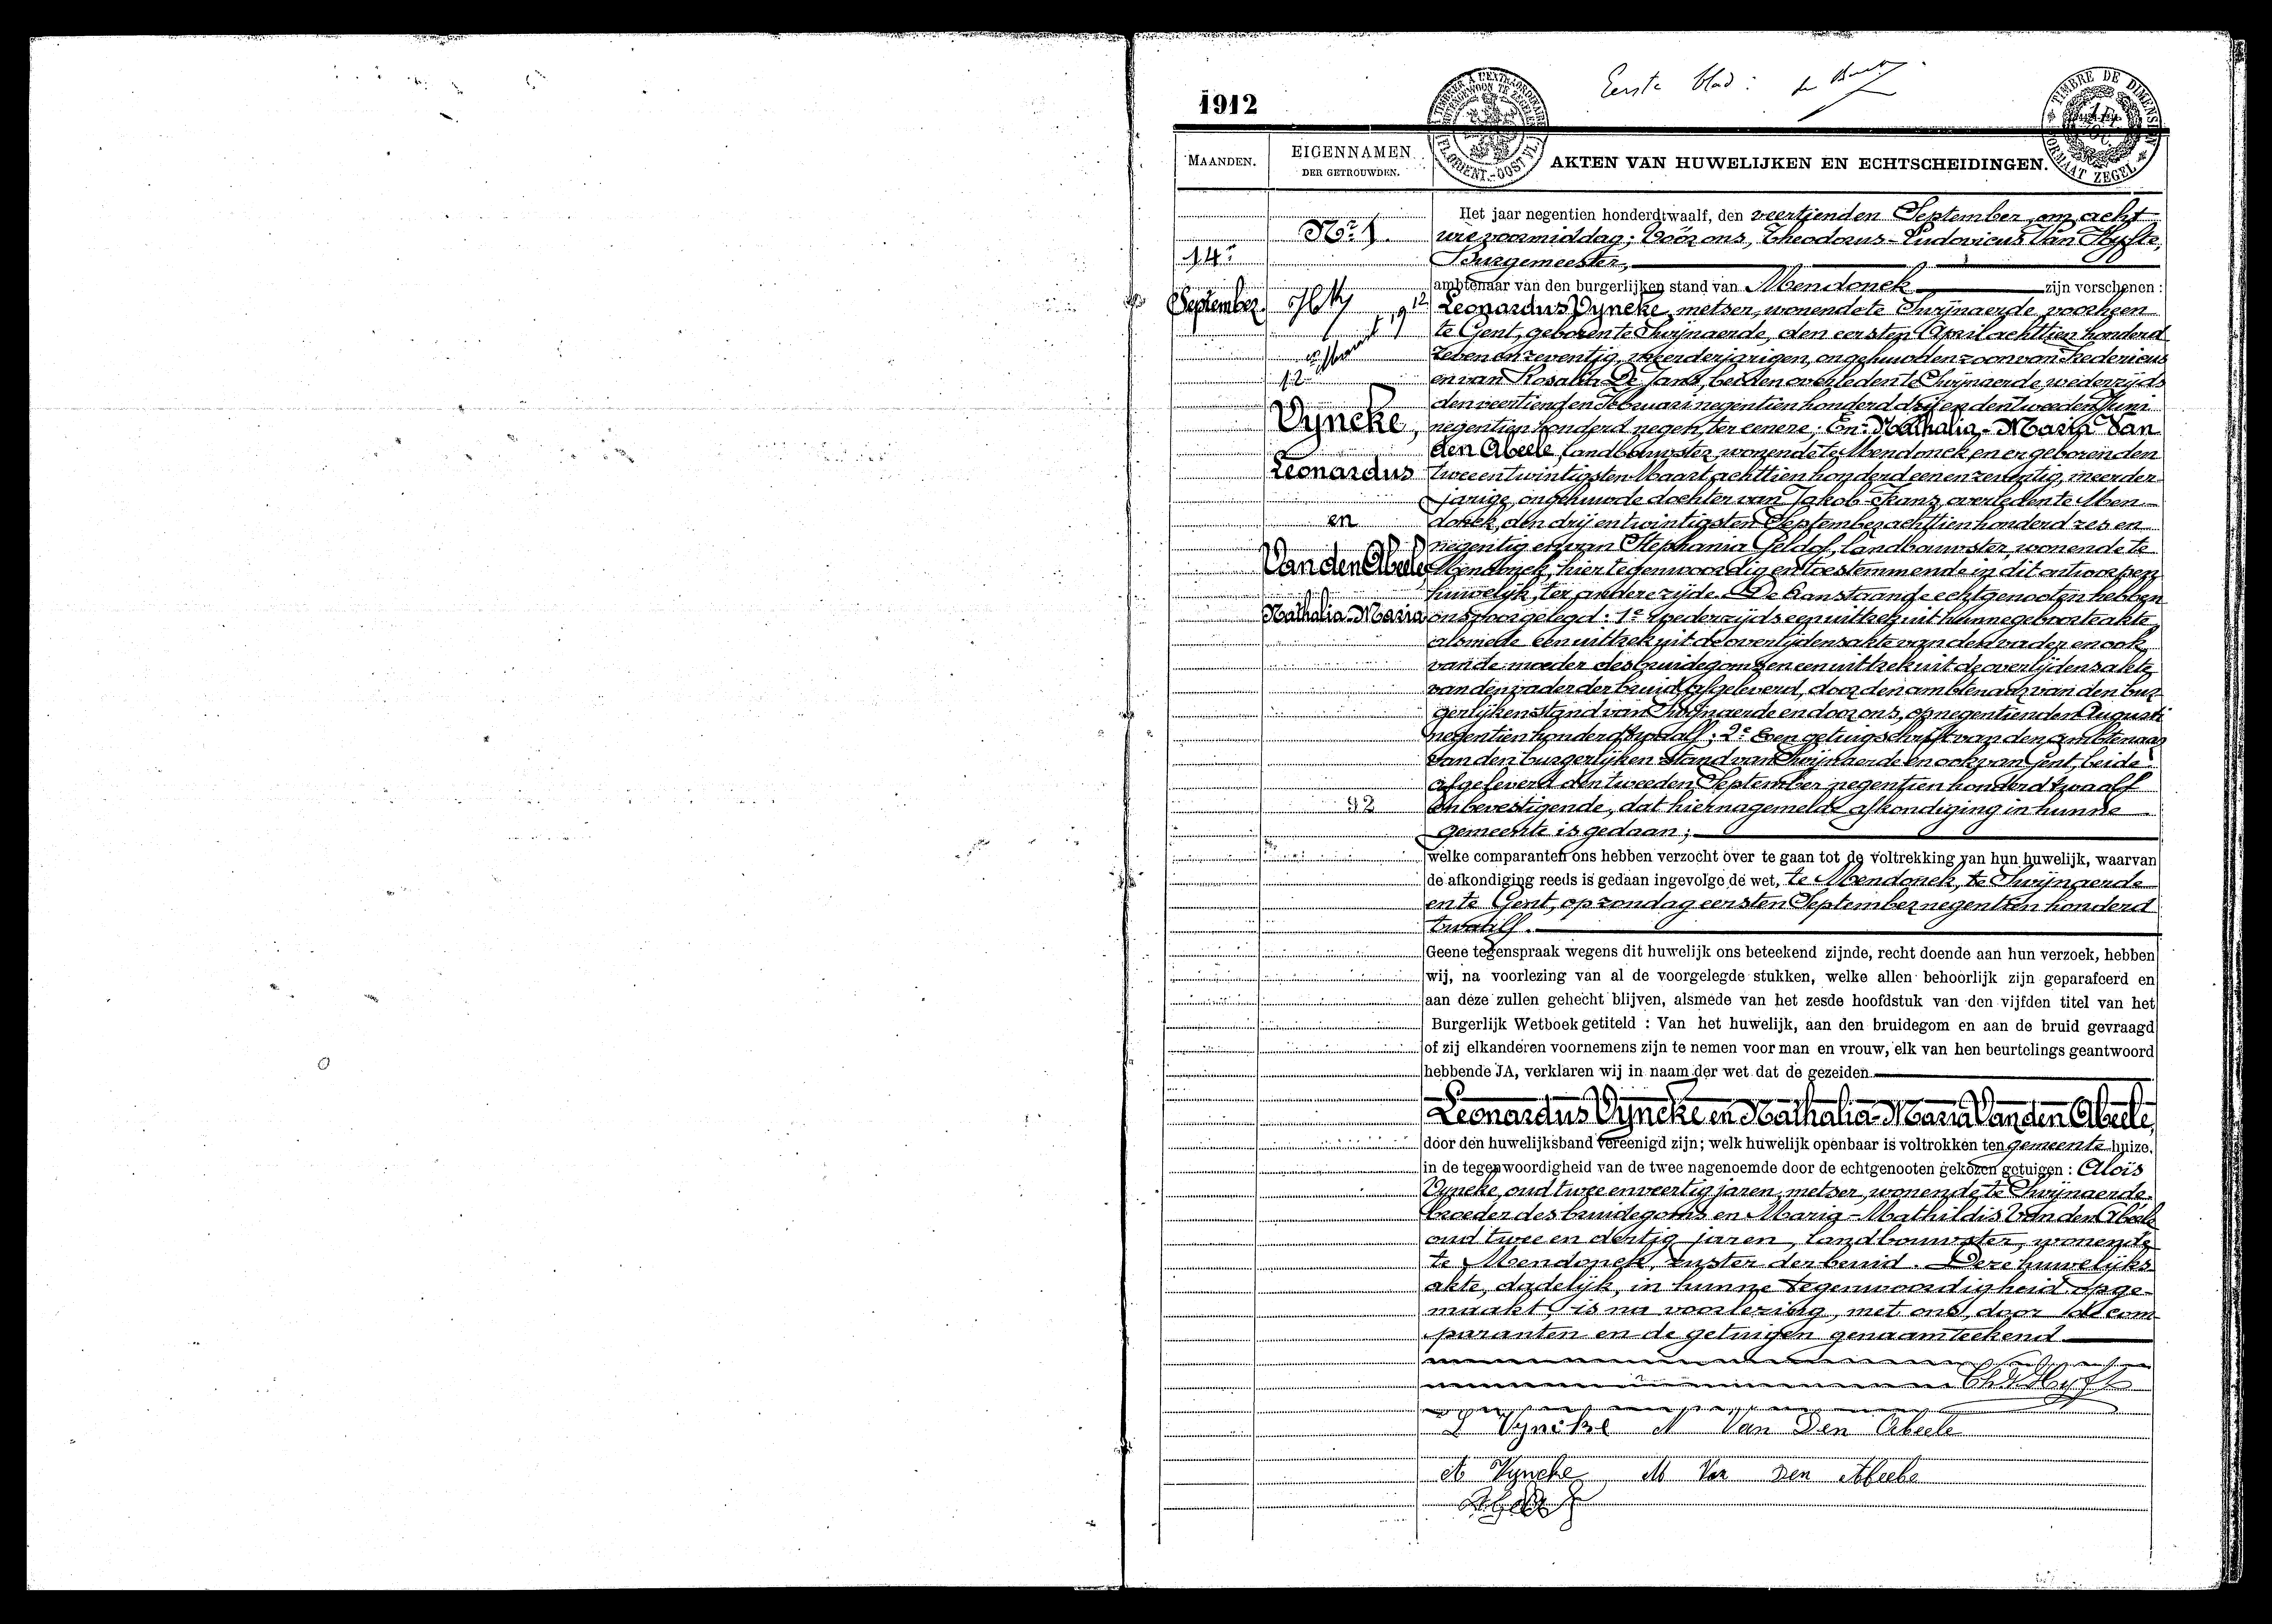 1912
Eerste blad :
TIMBRE DE DIMENSION
FORMAAT ZEGEL
MAANDEN.
EIGENNAMEN
DER GETROUWDEN.
AKTEN VAN HUWELIJKEN EN ECHTSCHEIDINGEN.
14e
September
No 1.
Vyncke,
Leonardus
en
Van den Abeele
Nathalia-Maria
92
Het jaar negentien honderdtwaalf, den veertienden September, om acht
ure voormiddag; Vóór ons, Theodorus-Ludovicus Van Hyfte,
Burgemeester,
ambtenaar van den burgerlijken stand van Mendonck zijn verschenen :
Leonardus Vyncke, metser, wonende te Swijnaerde, voorheen
te Gent, geboren te Swijnaerde, den eersten April achttien honderd
zeven en zeventig, meerderjarigen, ongehuwden zoon van Fredericus
en van Rosalia De Jans, beiden overleden te Swijnaerde, wederzijds
den veertienden Februari negentien honderd drij en den tweeden Juni
negentien honderd negen, ter eenere; En: Nathalia-Maria Van
den Abeele, landbouwster, wonende te Mendonck, en er geboren den
twee en twintigsten Maart achttien honderd een en zeventig, meerder-
jarige, ongehuwde dochter van Jakob-Frans, overleden te Men-
donck, den drij en twintigsten September achttien honderd zes en
negentig en van Stephania Geldof, landbouwster, wonende te
Mendonck, hier tegenwoordig en toestemmende in dit ontworpen
huwelijk, ter andere zijde. De aanstaande echtgenooten hebben
ons voorgelegd: 1e wederzijds een uittrek uit hunne geboorteakte,
alsmede een uittrek uit de overlijdensakte van den vader en ook
van de moeder des bruidegoms en een uittrek uit de overlijdensakte
van den vader der bruid, afgeleverd, door den ambtenaar van den bur-
gerlijken stand van Swijnaerde en door ons, op negentienden Augusti
negentien honderd twaalf; 2e Een getuigschrift van den ambtenaar
van den burgerlijken stand van Swijnaerde en ook van Gent, beide
afgeleverd den tweeden September negentien honderd twaalf
en bevestigende, dat hiernagemelde afkondiging in hunne
gemeente is gedaan;
welke comparanten ons hebben verzocht over te gaan tot de voltrekking van hun huwelijk, waarvan
de afkondiging reeds is gedaan ingevolge de wet, te Mendonck, te Swijnaerde
en te Gent, op zondag eersten September negentien honderd
twaalf.
Geene tegenspraak wegens dit huwelijk ons beteekend zijnde, recht doende aan hun verzoek, hebben
wij, na voorlezing van al de voorgelegde stukken, welke allen behoorlijk zijn geparafeerd en
aan deze zullen gehecht blijven, alsmede van het zesde hoofdstuk van den vijfden titel van het
Burgerlijk Wetboek getiteld : Van het huwelijk, aan den bruidegom en aan de bruid gevraagd
of zij elkanderen voornemens zijn te nemen voor man en vrouw, elk van hen beurtelings geantwoord
hebbende JA, verklaren wij in naam der wet dat de gezeiden
Leonardus Vyncke en Nathalia-Maria Van den Abeele,
door den huwelijksband vereenigd zijn; welk huwelijk openbaar is voltrokken ten gemeente huize,
in de tegenwoordigheid van de twee nagenoemde door de echtgenooten gekozen getuigen : Aloïs
Vyncke, oud twee en veertig jaren, metser, wonende te Swijnaerde,
broeder des bruidegoms en Maria-Mathildis Van den Abeele
oud twee en dertig jaren, landbouwster, wonende
te Mendonck, zuster der bruid. Deze huwelijks-
akte, dadelijk, in hunne tegenwoordigheid opge-
maakt, is na voorlezing, met ons, door de com-
paranten en de getuigen genaamteekend
Th. V. Hyfte
L Vyncke N Van Den Abeele
A Vyncke M Van Den Abeele